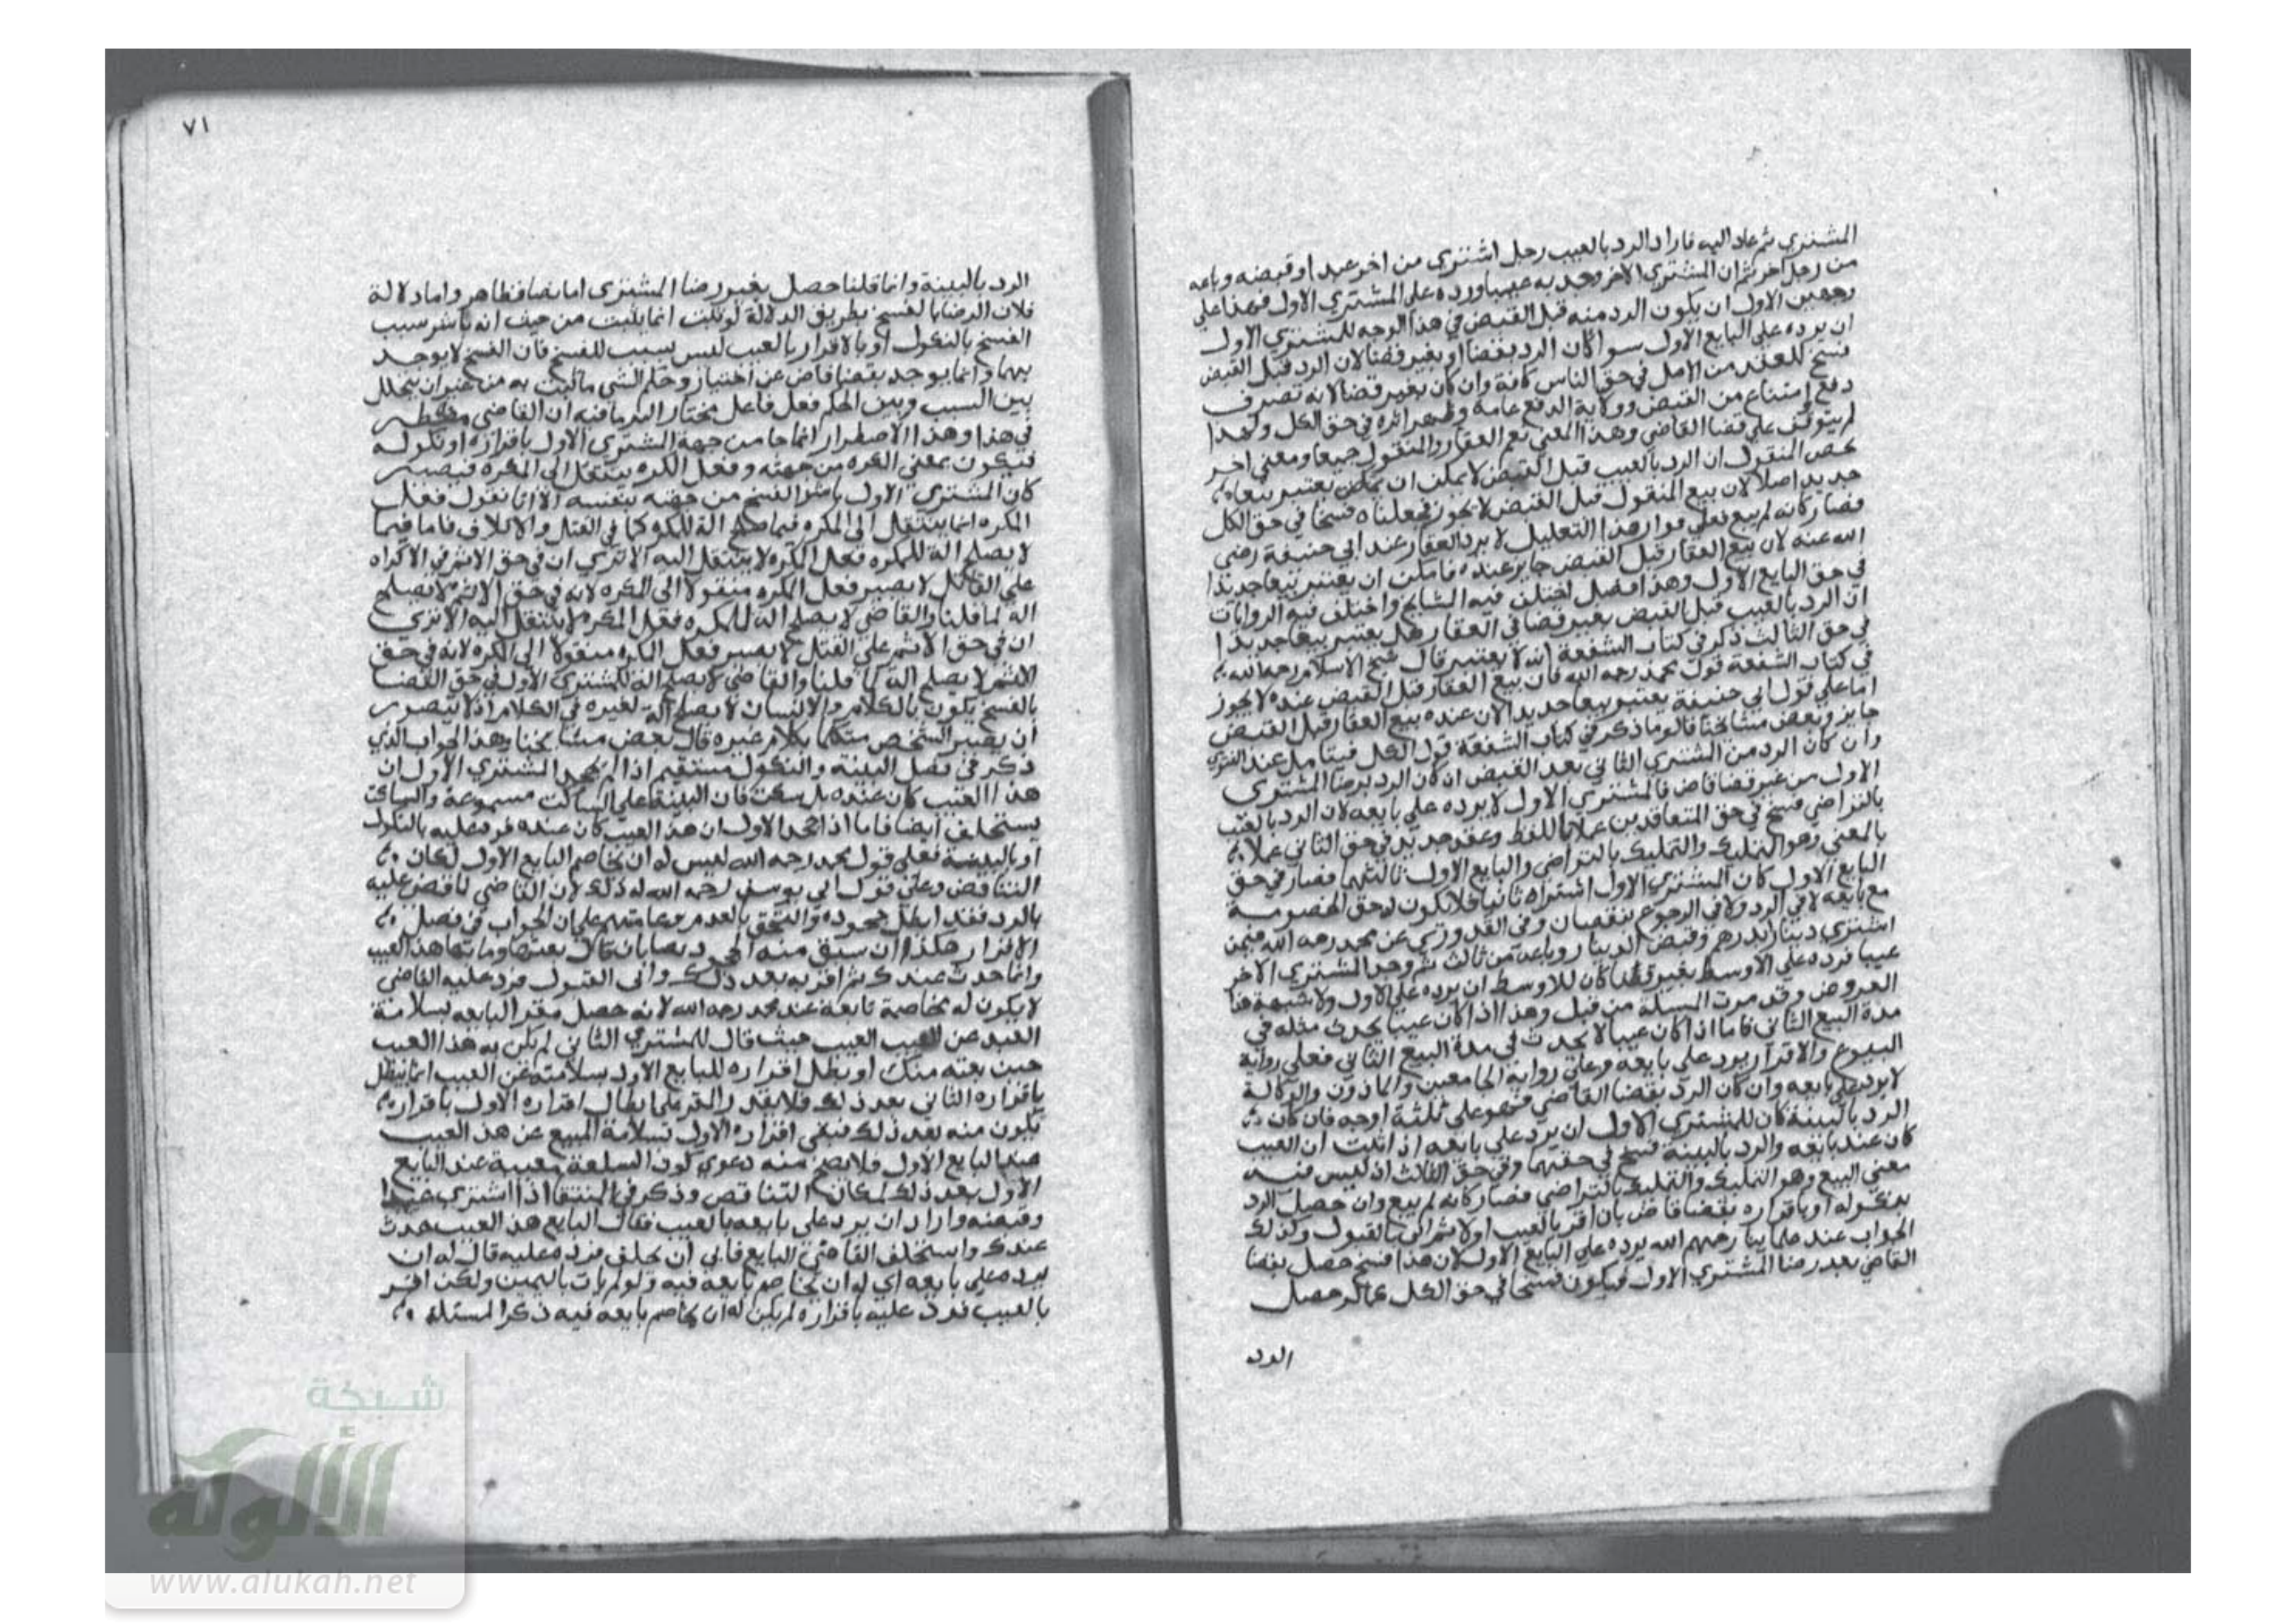 المشتري ثم عاد اليه فاراد الرد بالعيب رجل اشترى من اخر عبدا وقبضه وباعه
من رجل اخر ثم ان المشتري الاخر وجد به عيبا ورده على المشتري الاول فهذا على
وجهين الاول ان يكون الرد منه قبل القبض في هذا الوجه للمشتري الاول
ان يرده على البايع الاول سوا كان الرد بقضا او بغير قضا لان الرد قبل القبض
فسخ للعقد من الاصل في حق الناس كافة وان كان بغير قضا لانه تصرف
دفع وامتناع من القبض وولاية الدفع عامة وظهر اثره في حق الكل ولهذا
لم يتوقف على قضا القاضي وهذا المعنى يعم العقار والمنقول جميعا ومعنى اخر
يخص المنقول ان الرد بالعيب قبل القبض لا يمكن ان يعتبر بيعا
جديدا اصلا لان بيع المنقول قبل القبض لا يجوز فجعلناه فسخا في حق الكل
فصار كانه لم يبع فعلى هذا التعليل لا يرد العقار عند ابي حنيفة رضي
الله عنه لان بيع العقار قبل القبض جايز عنده فامكن ان يعتبر بيعا جديدا
في حق البايع الاول وهذا فصل اختلف فيه المشايخ واختلف فيه الروايات
ان الرد بالعيب قبل القبض بغير قضا في العقار هل يعتبر بيعا جديدا
في حق الثالث ذكر في كتاب الشفعة انه لا يعتبر قال شيخ الاسلام رحمه الله
في كتاب الشفعة قول محمد رحمه الله فان بيع العقار قبل القبض عنده لا يجوز
اما على قول ابي حنيفة يعتبر بيعا جديدا لان عنده بيع العقار قبل القبض
جايز وبعض مشايخنا قالوا ما ذكر في كتاب الشفعة قول الكل فيتامل عند الفتوى
وان كان الرد من المشتري الثاني بعد القبض ان كان الرد برضا المشتري
الاول من غير قضا قاض فالمشتري الاول لا يرده على بايعه لان الرد بالعيب
بالتراضي فسخ في حق المتعاقدين عملا باللفظ وعقد جديد في حق الثاني عملا
بالمعنى وهو التمليك والتمليك بالتراضي والبايع الاول ثالثهما فصار في حق
البايع الاول كان المشتري الاول اشتراه ثانيا فلا يكون له حق الخصومة
مع بايعه لا في الرد ولا في الرجوع بنقصان وفي القدوري عن محمد رحمه الله فيمن
اشترى دينارا بدرهم وقبض الدينار وباعه من ثالث ثم وجد المشتري الاخر
عيبا فرده على الاوسط بغير قضا كان للاوسط ان يرده على الاول ولا شبهة هنا
العروض وقد مرت المسلة من قبل وهذا اذا كان عيبا يحدث مثله في
مدة البيع الثاني فاما اذا كان عيبا لا يحدث في مدة البيع الثاني فعلى رواية
البيوع والاقرار يرد على بايعه وعلى رواية الجامعين والماذون والوكالة
لا يرد على بايعه وان كان الرد بقضا القاضي فهو على ثلثة اوجه فان كان
الرد بالبينة كان للمشتري الاول ان يرد على بايعه اذا اثبت ان العيب
كان عند بايعه والرد بالبينة فسخ في حقهما وفي حق الثالث اذ ليس فيه
معنى البيع وهو التمليك والتمليك بالتراضي فصار كانه لم يبع وان حصل الرد
بنكوله او باقراره بقضا قاض بان اقر بالعيب اولا ثم ابى بالقبول وكذلك
الجواب عند علماينا رحمهم الله يرده على البايع الاول لان هذا فسخ حصل بقضا
القاضي بعد رضا المشتري الاول فيكون فسخا في حق الكل كما لو حصل
الرد
٧١
الرد بالبينة وانما قلنا حصل بغير رضا المشتري اما نصا فظاهر واما دلالة
فلان الرضا بالفسخ بطريق الدلالة لو ثبت انما يثبت من حيث انه باشر سبب
الفسخ بالنكول او بالاقرار بالعيب ليس بسبب للفسخ فان الفسخ لا يوجد
بهما وانما يوجد بقضا قاض عن اختيار وحكم الشي ما يثبت به من غير ان يتخلل
بين السبب وبين الحكم فعل فاعل مختار اكثر ما فيه ان القاضي مضطر
في هذا وهذا الاضطرار انما جا من جهة المشتري الاول باقراره او نكوله
فيكون بمعنى المكره من جهته وفعل المكره ينتقل الى المكره فيصير
كان المشتري الاول باشر الفسخ من جهته بنفسه الا انا نقول فعل
المكره انما ينتقل الى المكره فيما صلح الة للمكره كما في القتل والاتلاف فاما فيما
لا يصلح الة للمكره ففعل المكره لا ينتقل اليه الا ترى ان في حق الاثم في الاكراه
على القتل لا يصير فعل المكره منقولا الى المكره لانه في حق الاثم لا يصلح
الة لما قلنا والقاضي لا يصلح الة للمكره ففعل المكره لا ينتقل اليه الا ترى
ان في حق الاثم على القتل لا يصير فعل المكره منقولا الى المكره لانه في حق
الاثم لا يصلح الة كما قلنا والقاضي لا يصلح الة للمشتري الاول في حق القضا
بالفسخ يكون بالكلام والانسان لا يصلح الة لغيره في الكلام اذ لا يتصور
ان يصير الشخص متكلما بكلام غيره قال بعض مشايخنا وهذا الجواب الذي
ذكر في فصل البينة والنكول مستقيم اذا لم يجحد المشتري الاول ان
هذا العيب كان عنده بل سكت فان البينة على الساكت مسموعة والساكت
يستحلف ايضا فاما اذا جحد الاول ان هذا العيب كان عنده فرد عليه بالنكول
او بالبينة فعلى قول محمد رحمه الله ليس له ان يخاصم البايع الاول لمكان
التناقض وعلى قول ابي يوسف رحمه الله له ذلك لان القاضي لما قضى عليه
بالرد فقد ابطل جحوده والتحق بالعدم وعامتهم على ان الجواب في فصل
الاقرار هكذا ان سبق منه الجحود نصا بان قال بعتها وما بها هذا العيب
وانما حدث عندك ثم اقر به بعد ذلك وابى القبول فرد عليه القاضي
لا يكون له مخاصمة بايعه عند محمد رحمه الله لانه حصل مقرا لبايعه بسلامة
العبد عن العيب حيث قال للمشتري الثاني لم يكن به هذا العيب
حين بعته منك او بطل اقراره للبايع الاول بسلامته عن العيب انما يبطل
باقراره الثاني بعد ذلك فلا يقدر المقر على ابطال اقراره الاول باقرار
يكون منه بعد ذلك فبقي اقراره الاول بسلامة المبيع عن هذا العيب
عند البايع الاول فلا يصح منه دعوى كون السلعة معيبة عند البايع
الاول بعد ذلك لمكان التناقض وذكر في المنتقا اذا اشترى عبدا
وقبضه واراد ان يرد على بايعه بالعيب فقال البايع هذا العيب حدث
عندك واستحلف القاضي البايع فابى ان يحلف فرده عليه قال له ان
يرده على بايعه اي له ان يخاصم بايعه فيه ولو لم يات باليمين ولكن اقر
بالعيب فرد عليه باقراره لم يكن له ان يخاصم بايعه فيه ذكر المسئلة
شبكة
الألوكة
www.alukah.net